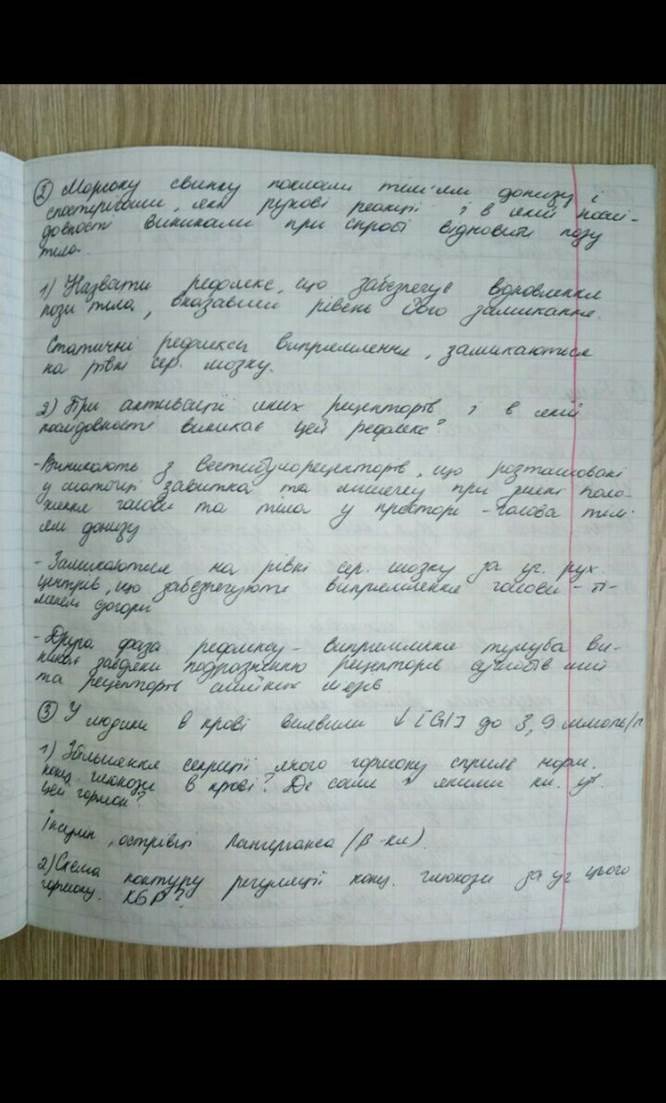 ② Морську свинку поклали тім'ям донизу і
спостерігали, які рухові реакції і в якій послі-
довності виникали при спробі відновити позу
тіла.
1) Назвати рефлекс, що забезпечує відновлення
пози тіла, вказавши рівень його замикання.
Статичні рефлекси випрямлення, замикаються
на рівні сер. мозку.
2) При активації яких рецепторів і в якій
послідовності виникає цей рефлекс?
-Виникають з вестибулорецепторів, що розташовані
у завитка та мішечку при зміні поло-
ження голови та тіла у просторі - голова тім'-
ям донизу
- Замикаються на рівні сер. мозку за уч. рух.
центрів, що забезпечують випрямлення голови - ті-
менем догори
-Друга фаза рефлексу - випрямлення тулуба ви-
никає завдяки подразненню рецепторів суглобів шиї
та рецепторів шийних м'язів
③ У людини в крові виявили ↓ [Gl] до 3,9 ммоль/л
1) Збільшення секреції якого гормону сприяє норм.
конц. глюкози в крові? Де саме і якими кл. ут.
цей гормон?
Інсулін, острівці Лангерганса (β-кл).
2) Схема контуру регуляції конц. глюкози за уч цього
гормону. КБР?